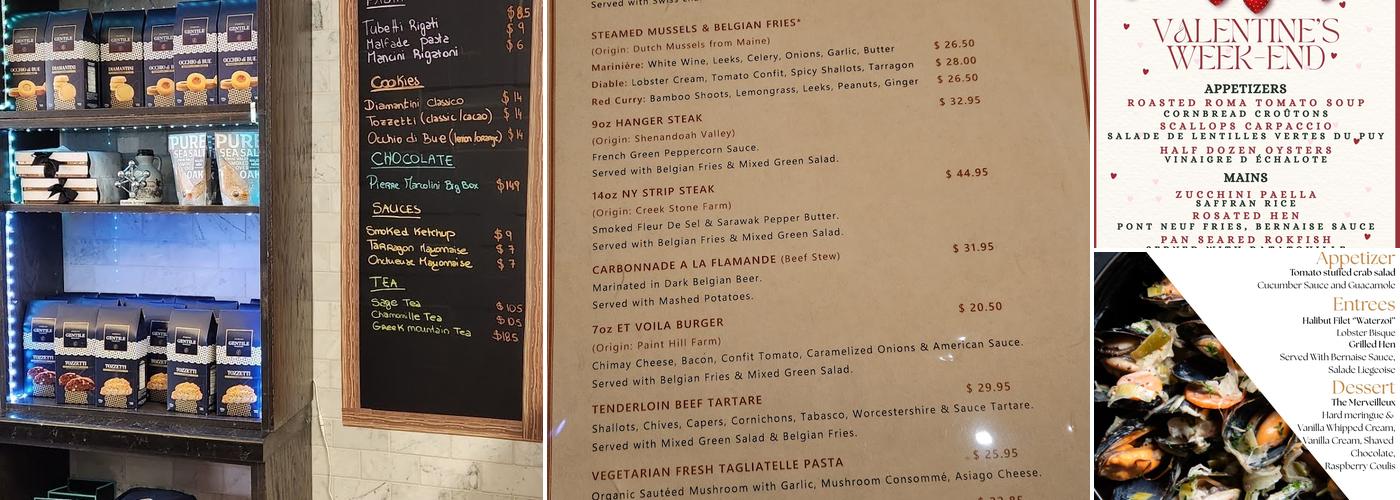 GENTILE
GENTILE
GENTILE
GENTILE
OCCHIO di BUE
DIAMANTINI
DIAMANTINI
OCCHIO di BUE
PURE
SEA SALT
PURE
SEA SALT
OAK
GENTILE
GENTILE
GENTILE
GENTILE
GENTILE
TOZZETTI
TOZZETTI
TOZZETTI
TOZZETTI
$8.5
Tubetti Rigati $9
Malfade pasta $6
Mancini Rigatoni
Cookies
Diamantini Classico $14
Tozzetti (classic/cacao) $14
Occhio di Bue (lemon/orange) $14
CHOCOLATE
Pierre Marcolini Big Box $149
SAUCES
Smoked Ketchup $9
Tarragon Mayonnaise $7
Onctueuse Mayonnaise $7
TEA
Sage Tea $10.5
Chamomille Tea $10.5
Greek mountain Tea $18.5
STEAMED MUSSELS & BELGIAN FRIES*
(Origin: Dutch Mussels from Maine)
Marinière: White Wine, Leeks, Celery, Onions, Garlic, Butter $ 26.50
Diable: Lobster Cream, Tomato Confit, Spicy Shallots, Tarragon $ 28.00
Red Curry: Bamboo Shoots, Lemongrass, Leeks, Peanuts, Ginger $ 26.50
9oz HANGER STEAK $ 32.95
(Origin: Shenandoah Valley)
French Green Peppercorn Sauce.
Served with Belgian Fries & Mixed Green Salad.
14oz NY STRIP STEAK $ 44.95
(Origin: Creek Stone Farm)
Smoked Fleur De Sel & Sarawak Pepper Butter.
Served with Belgian Fries & Mixed Green Salad.
CARBONNADE A LA FLAMANDE (Beef Stew) $ 31.95
Marinated in Dark Belgian Beer.
Served with Mashed Potatoes.
7oz ET VOILA BURGER $ 20.50
(Origin: Paint Hill Farm)
Chimay Cheese, Bacon, Confit Tomato, Caramelized Onions & American Sauce.
Served with Belgian Fries & Mixed Green Salad.
TENDERLOIN BEEF TARTARE $ 29.95
Shallots, Chives, Capers, Cornichons, Tabasco, Worcestershire & Sauce Tartare.
Served with Mixed Green Salad & Belgian Fries.
VEGETARIAN FRESH TAGLIATELLE PASTA $ 25.95
Organic Sautéed Mushroom with Garlic, Mushroom Consommé, Asiago Cheese.
VALENTINE'S
WEEK-END
APPETIZERS
ROASTED ROMA TOMATO SOUP
CORNBREAD CROÛTONS
SCALLOPS CARPACCIO
SALADE DE LENTILLES VERTES DU PUY
HALF DOZEN OYSTERS
VINAIGRE D ÉCHALOTE
MAINS
ZUCCHINI PAELLA
SAFFRAN RICE
ROSATED HEN
PONT NEUF FRIES, BERNAISE SAUCE
PAN SEARED ROKFISH
Appetizer
Tomato stuffed crab salad
Cucumber Sauce and Guacamole
Entrees
Halibut Filet "Waterzoi"
Lobster Bisque
Grilled Hen
Served With Bernaise Sauce,
Salade Liegeoise
Dessert
The Merveilleux
Hard meringue &
Vanilla Whipped Cream,
Vanilla Cream, Shaved
Chocolate,
Raspberry Coulis